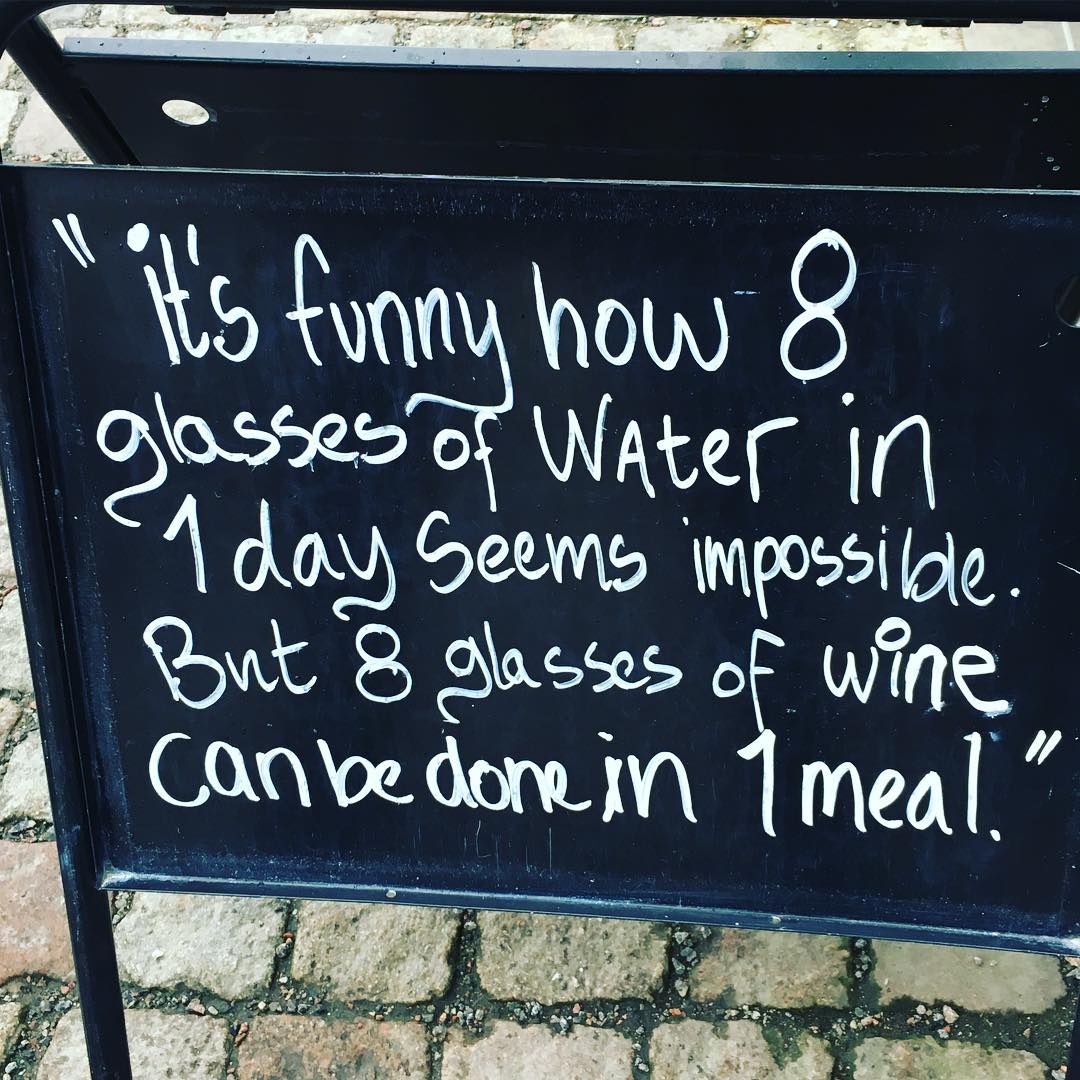 "it's funny how 8
glasses of WAter in
1 day Seems impossible.
But 8 glasses of wine
can be done in 1 meal."